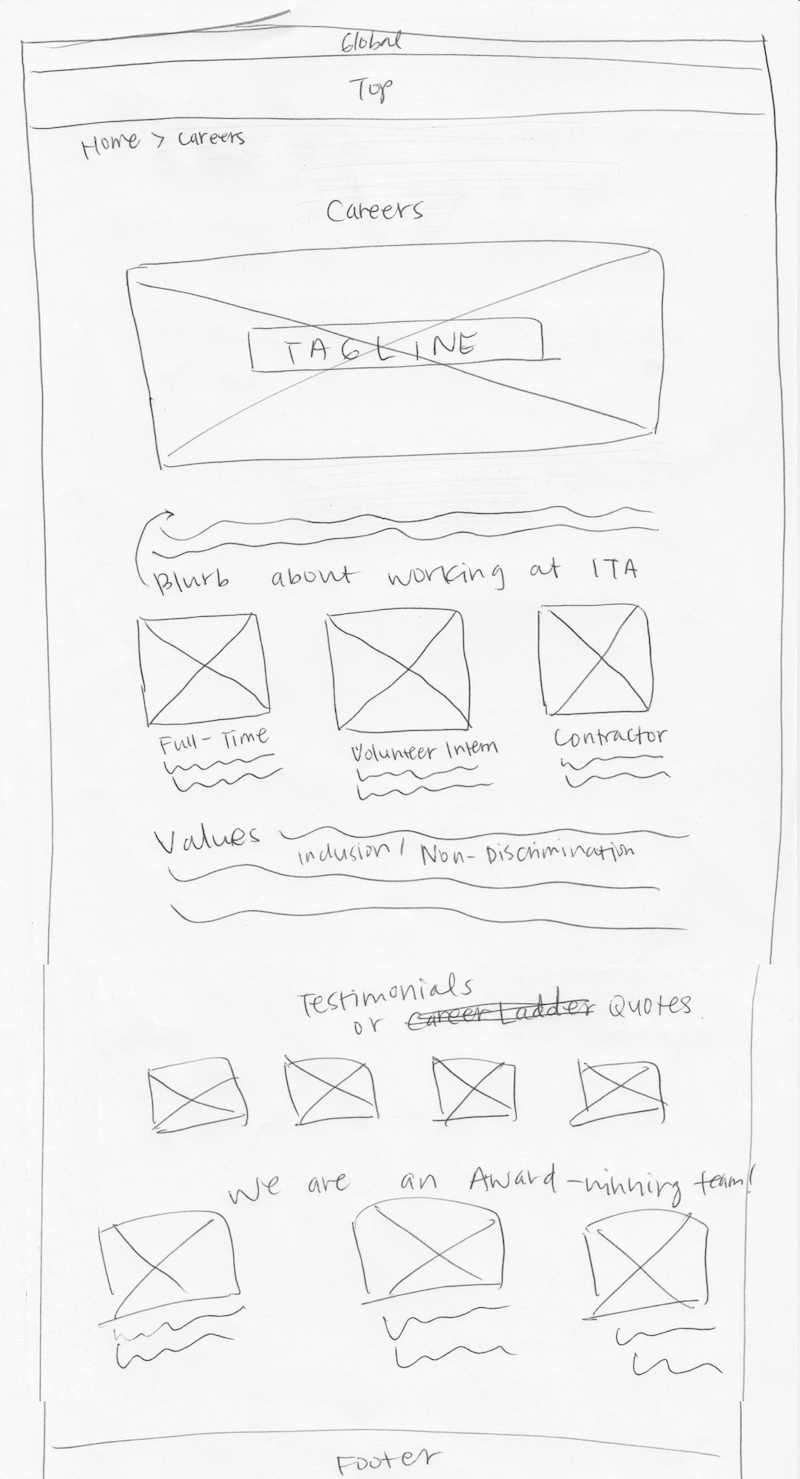 Global
Top
Home > Careers
Careers
TAGLINE
Blurb about working at ITA
Full-Time
Volunteer Intern
Contractor
Values
Inclusion / Non-Discrimination
Testimonials
or Career Ladder Quotes
We are an Award-winning team!
Footer